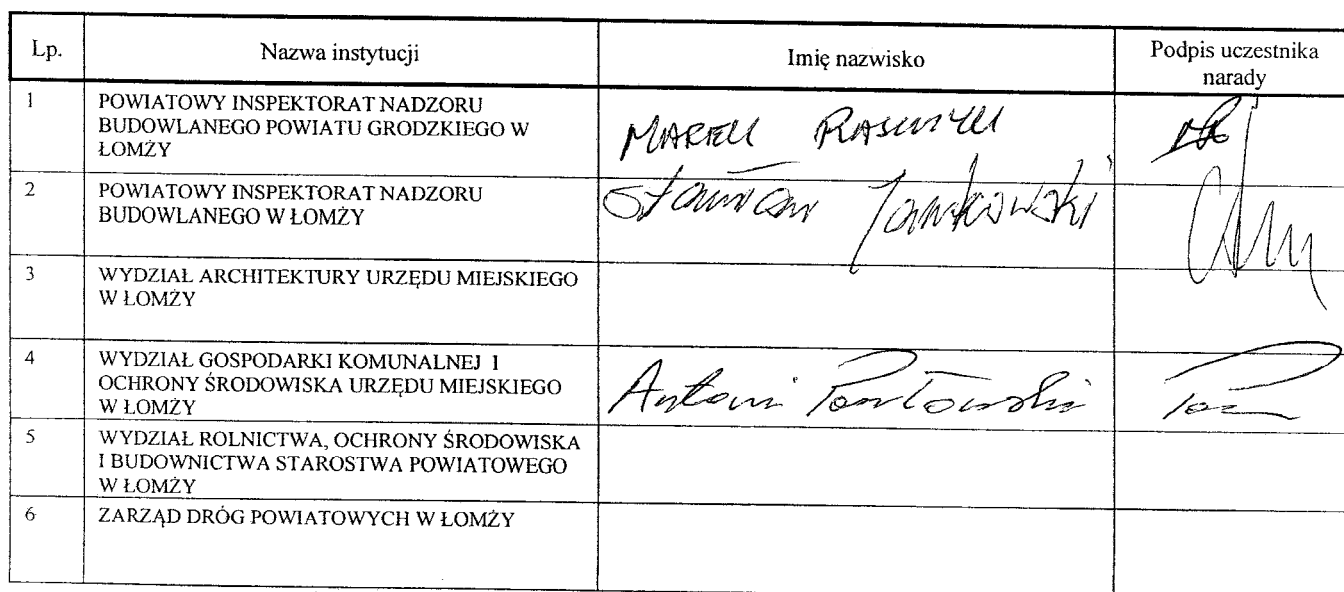 Lp. Nazwa instytucji Imię nazwisko Podpis uczestnika
narady
1 POWIATOWY INSPEKTORAT NADZORU
BUDOWLANEGO POWIATU GRODZKIEGO W
ŁOMŻY
MAREK
2 POWIATOWY INSPEKTORAT NADZORU
BUDOWLANEGO W ŁOMŻY
Stanisław Jankowski
3 WYDZIAŁ ARCHITEKTURY URZĘDU MIEJSKIEGO
W ŁOMŻY
4 WYDZIAŁ GOSPODARKI KOMUNALNEJ I
OCHRONY ŚRODOWISKA URZĘDU MIEJSKIEGO
W ŁOMŻY
Antoni
5 WYDZIAŁ ROLNICTWA, OCHRONY ŚRODOWISKA
I BUDOWNICTWA STAROSTWA POWIATOWEGO
W ŁOMŻY
6 ZARZĄD DRÓG POWIATOWYCH W ŁOMŻY